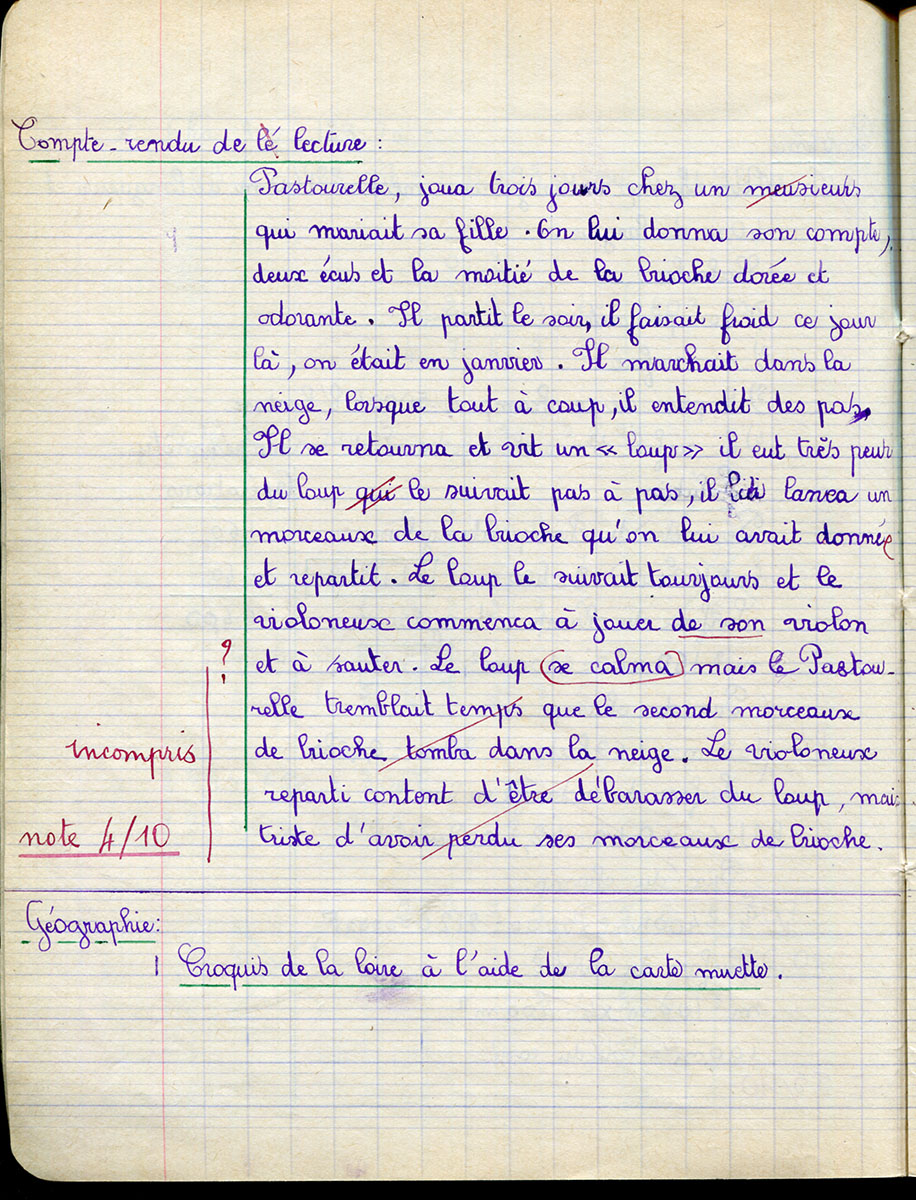 Compte-rendu de lé lecture :
Pastourelle, joua trois jours chez un meusieurs
qui mariait sa fille. On lui donna son compte,
deux écus et la moitié de la brioche dorée et
odorante. Il partit le soir, il faisait froid ce jour
là, on était en janvier. Il marchait dans la
neige, lorsque tout à coup, il entendit des pas,
Il se retourna et vit un « loup » il eut très peur
du loup qui le suivait pas à pas, il lui lanca un
morceaux de la brioche qu'on lui avait donnée
et repartit. Le loup le suivait tourjours et le
violoneux commenca à jouer de son violon
?
et à sauter. Le loup (se calma) mais le Pastou-
relle tremblait temps que le second morceaux
incompris
de brioche tomba dans la neige. Le violoneux
reparti content d'être débarasser du loup, mais
note 4/10
triste d'avoir perdu ses morceaux de brioche.
Géographie:
Croquis de la loire à l'aide de la carte muette.